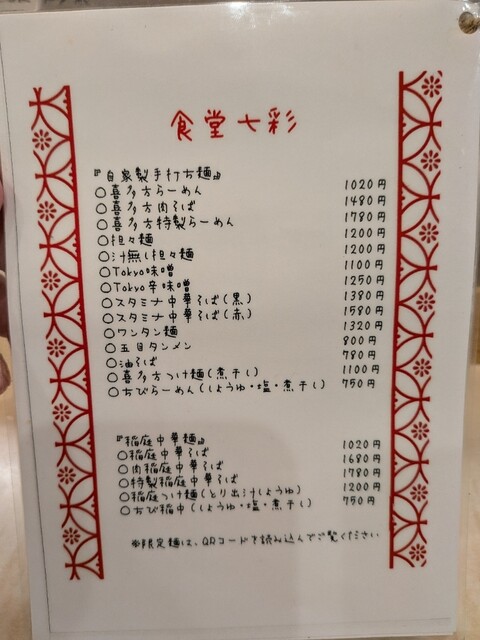 食堂七彩
『自家製手打ち麺』
○喜多方らーめん 1020円
○喜多方肉そば 1480円
○喜多方特製らーめん 1780円
○担々麺 1200円
○汁無し担々麺 1200円
○Tokyo味噌 1100円
○Tokyo辛味噌 1250円
○スタミナ中華そば(黒) 1380円
○スタミナ中華そば(赤) 1580円
○ワンタン麺 1320円
○五目タンメン 800円
○油そば 780円
○喜多方つけ麺(煮干し) 1100円
○ちびらーめん(しょうゆ・塩・煮干し) 750円
『稲庭中華麺』
○稲庭中華そば 1020円
○肉稲庭中華そば 1680円
○特製稲庭中華そば 1780円
○稲庭つけ麺(とり出汁しょうゆ) 1200円
○ちび稲中(しょうゆ・塩・煮干し) 750円
※限定麺は、QRコードを読み込んでご覧ください